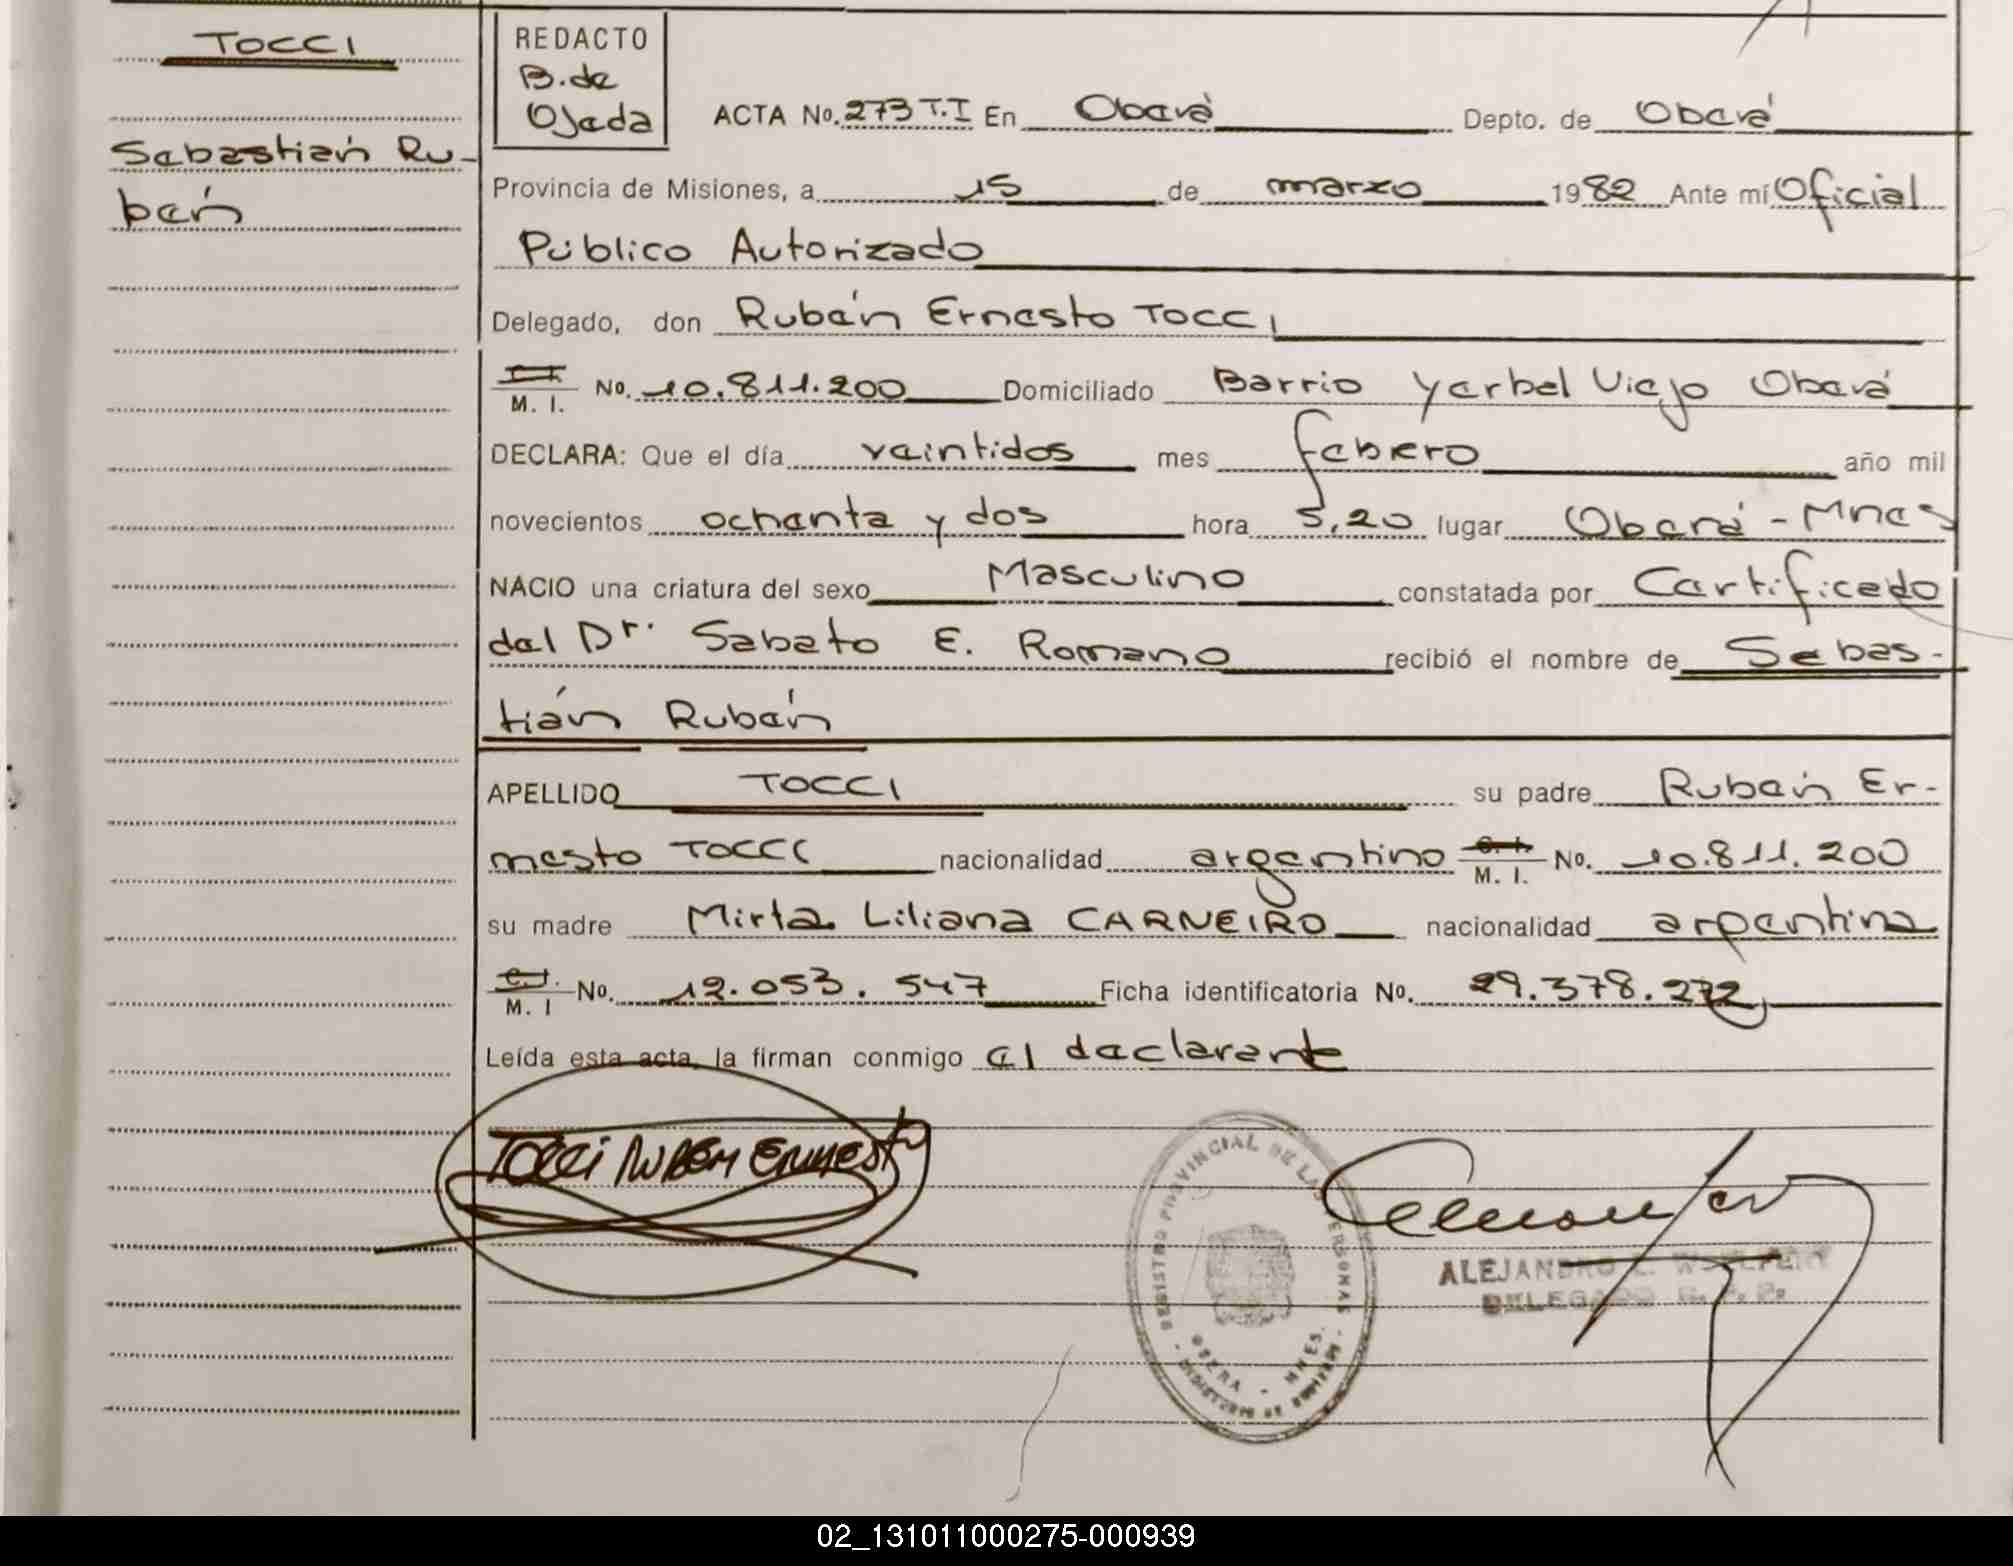 TOCCI
Sebastián Ru-
bén
REDACTO
B. de
Ojeda
ACTA No. 273 T.I En Oberá Depto. de Oberá
Provincia de Misiones, a 15 de marzo 1982 Ante mí Oficial
Público Autorizado
Delegado, don Rubén Ernesto TOCCI
M. I. No. 10.811.200 Domiciliado Barrio Yerbal Viejo Oberá
DECLARA: Que el día veintidos mes febrero año mil
novecientos ochenta y dos hora 5,20 lugar Oberá - Mnes
NACIO una criatura del sexo Masculino constatada por Certificado
del Dr. Sabato E. Romano recibió el nombre de Sebas-
tián Rubén
APELLIDO TOCCI su padre Rubén Er-
nesto TOCCI nacionalidad argentino C. I. M. I. No. 10.811.200
su madre Mirta Liliana CARNEIRO nacionalidad argentina
C. I. M. I No. 12.053.547 Ficha identificatoria No. 29.378.272
Leída esta acta, la firman conmigo el declarante
TOCCI RUBEN ERNESTO
REGISTRO PROVINCIAL DE LAS PERSONAS
OBERA - MNES.
MINISTERIO DE GOBIERNO
ALEJANDRO
DELEGADO R. P. P.
02_131011000275-000939